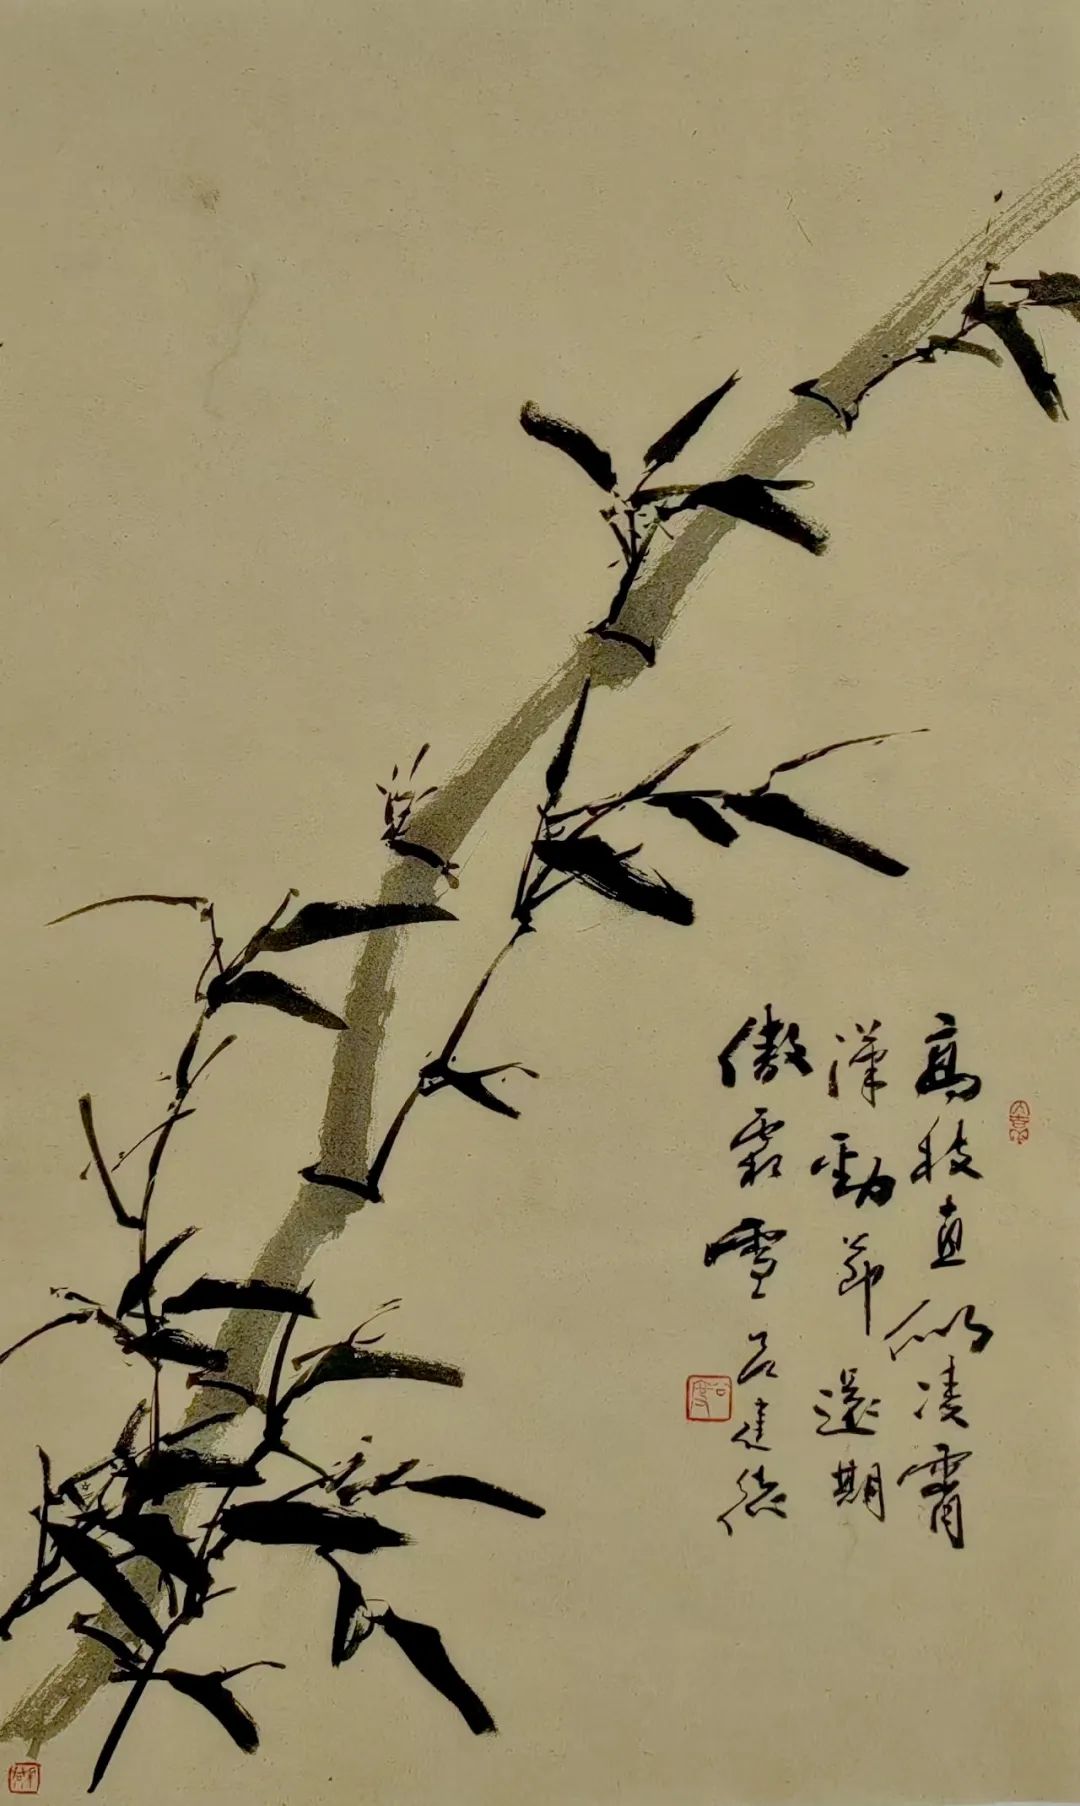 高枝直似凌霄
漢勁節還期
傲霜雪呂建德